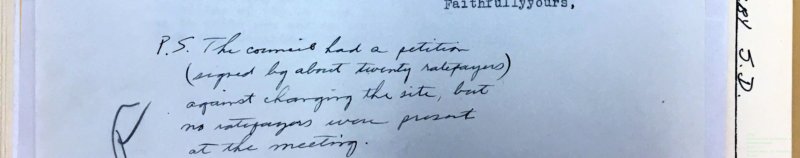 Faithfullyyours,
P.S. The council had a petition
(signed by about twenty ratepayers)
against changing the site, but
no ratepayers were present
at the meeting.
S.D.